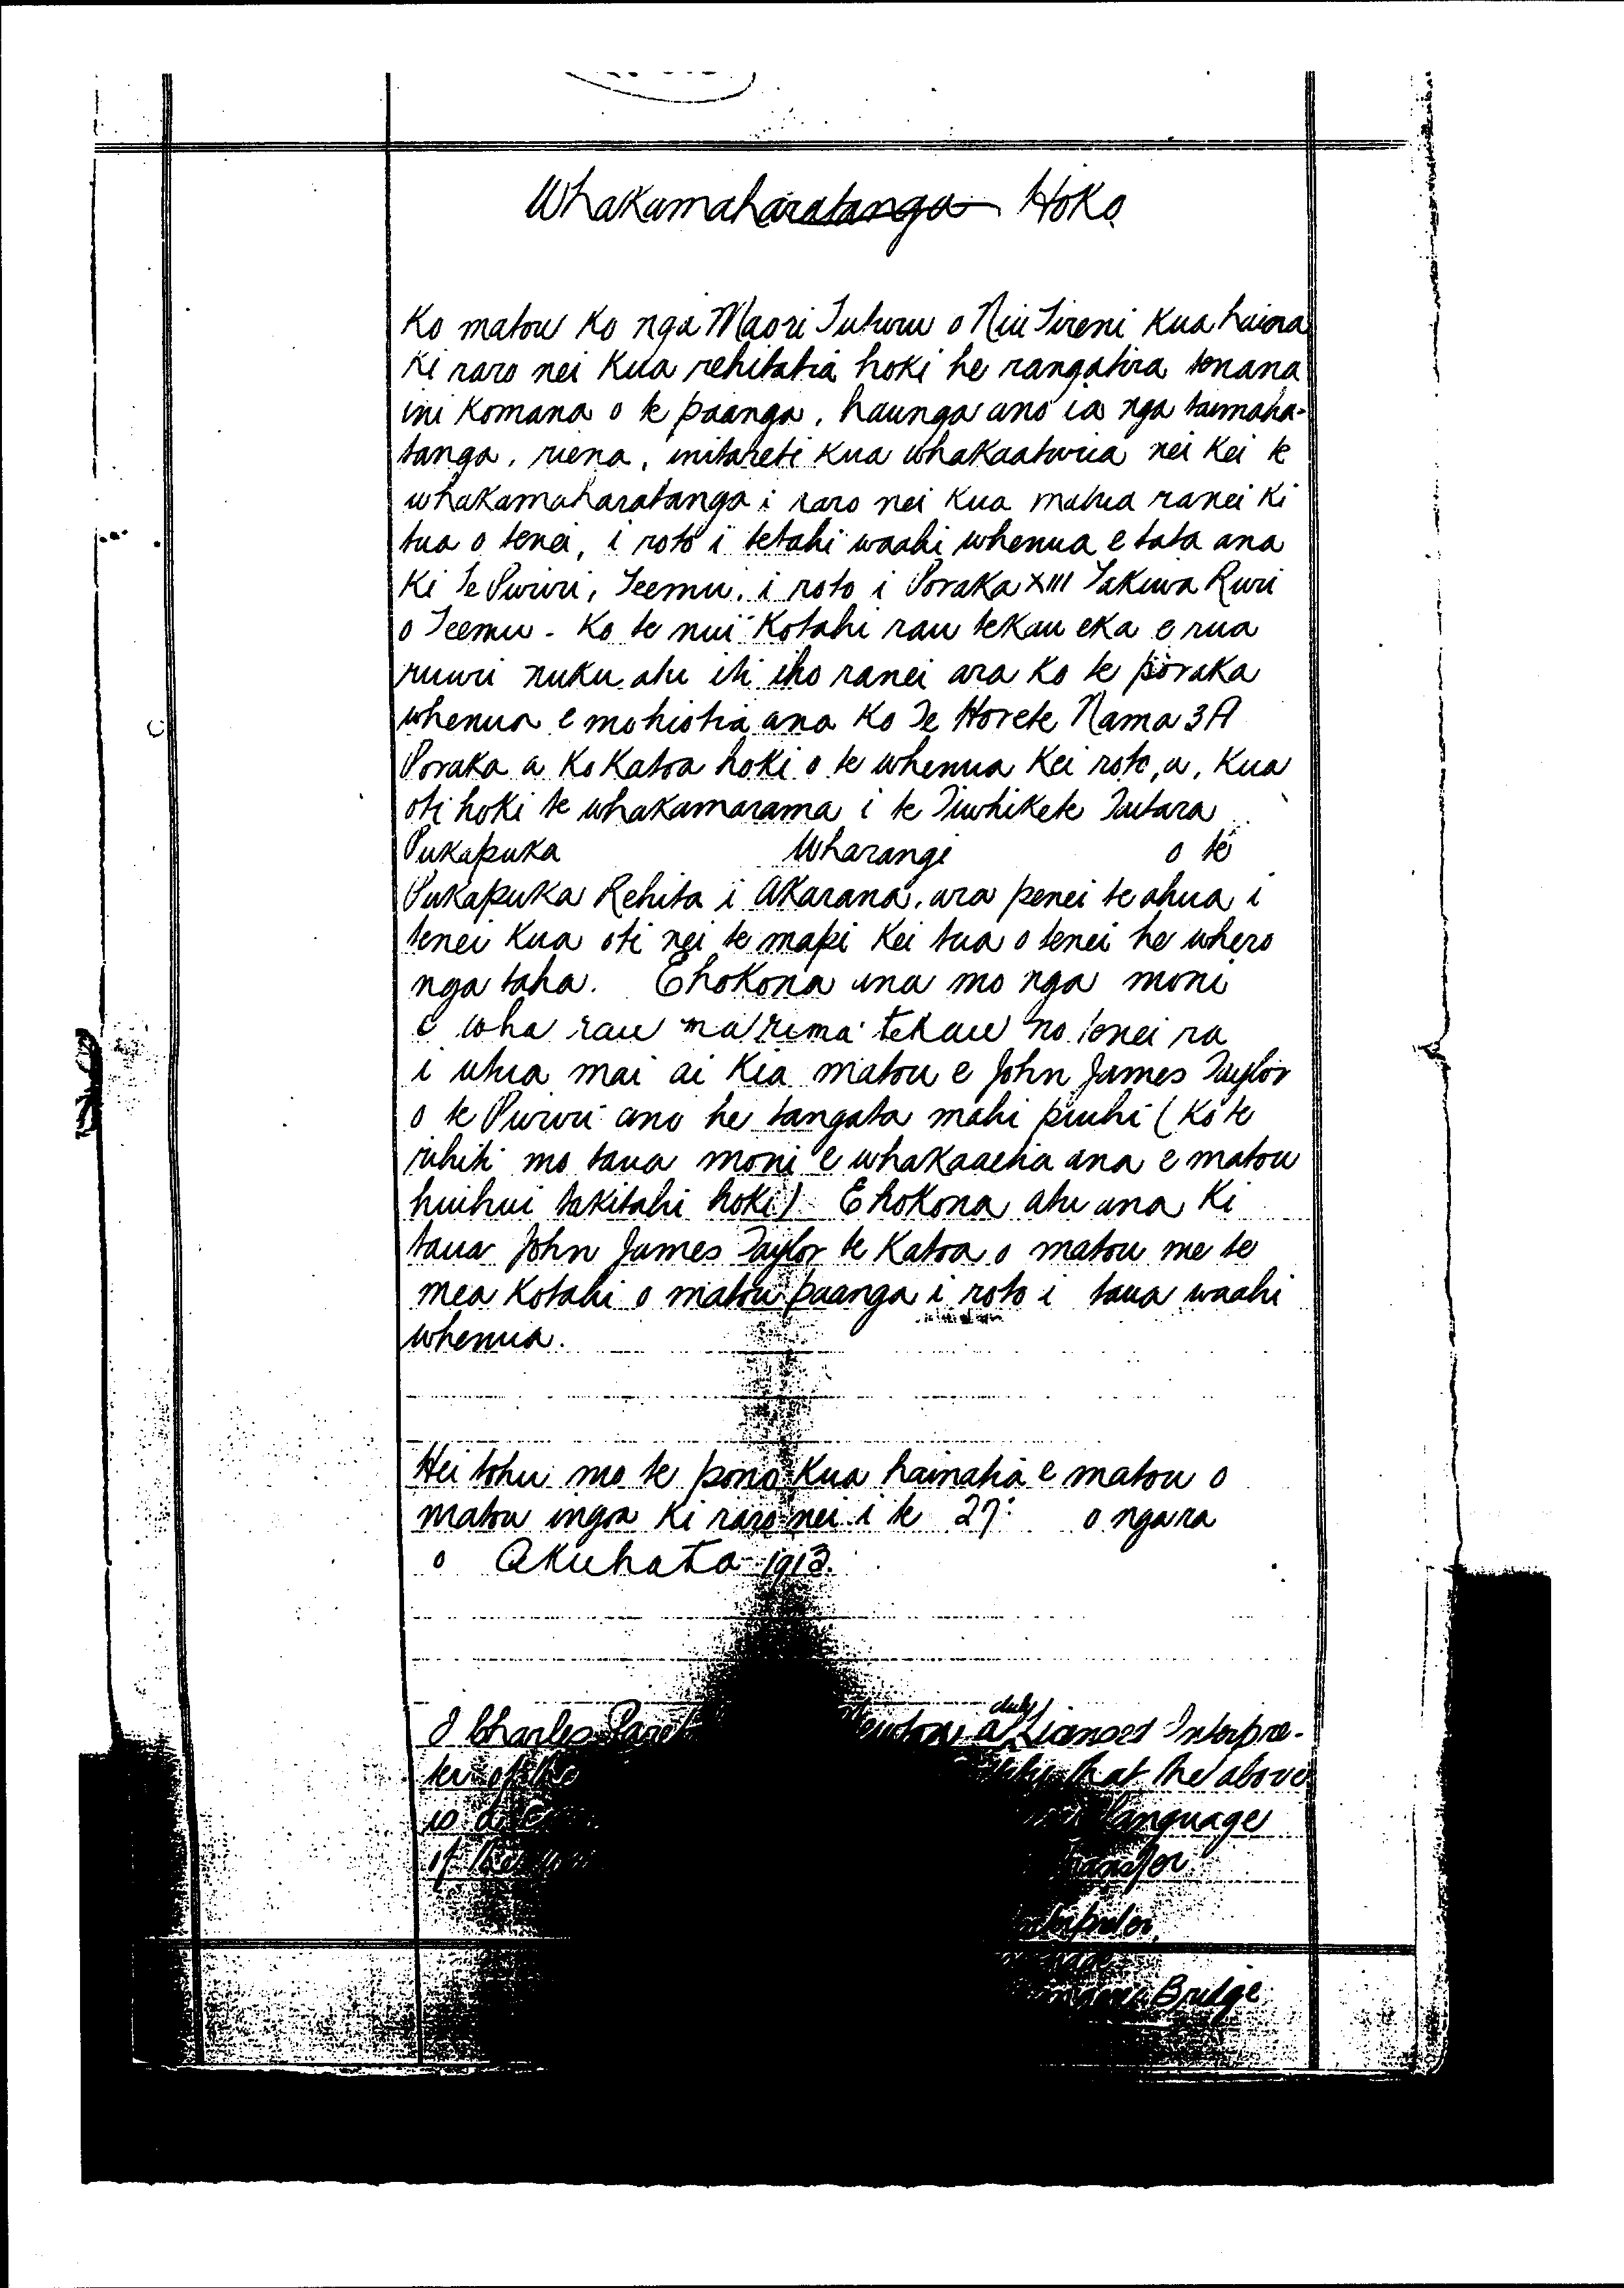 Whakamaharatanga Hoko.
Ko matou ko nga Maori Tuturu o Niu Tireni kua haina
ki raro nei kua rehitatia hoki he rangatira tenana
ini komana o te paanga, haunga ano ia nga taimaha-
tanga, riena, initareti kua whakaaturia nei kei te
whakamaharatanga i raro nei kua matua ranei ki
tua o tenei, i roto i tetahi waahi whenua e tata ana
ki Te Puriri, Teemu, i roto i Poraka XIII Takiwa Ruri
o Teemu - Ko te nui kotahi rau tekau eka e rua
ruuri nuku atu iti iho ranei ara ko te poraka
whenua e mohiotia ana ko Te Horete Nama 3A
Poraka a ko katoa hoki o te whenua kei roto, a, kua
oti hoki te whakamarama i te Tiwhikete Taitara
Pukapuka Wharangi o te
Pukapuka Rehita i Akarana, ara penei te ahua i
tenei kua oti nei te mapi kei tua o tenei he whero
nga taha. Ehokona ana mo nga moni
e wha rau ma rima tekau no tenei ra
i utua mai ai kia matou e John James Taylor
o te Puriri ano he tangata mahi piuhi (ko te
rihiti mo taua moni e whakaaetia ana e matou
huihui takitahi hoki) Ehokona atu ana ki
taua John James Taylor te katoa o matou me te
mea kotahi o matou paanga i roto i taua waahi
whenua.
Hei tohu mo te pono kua hainatia e matou o
matou ingoa ki raro nei i te 27: o nga ra
o Akuhata 1913.
I Charles a duly Licensed Interpre-
ter of the that the above
is a language
of the
Interpreter,
Bridge